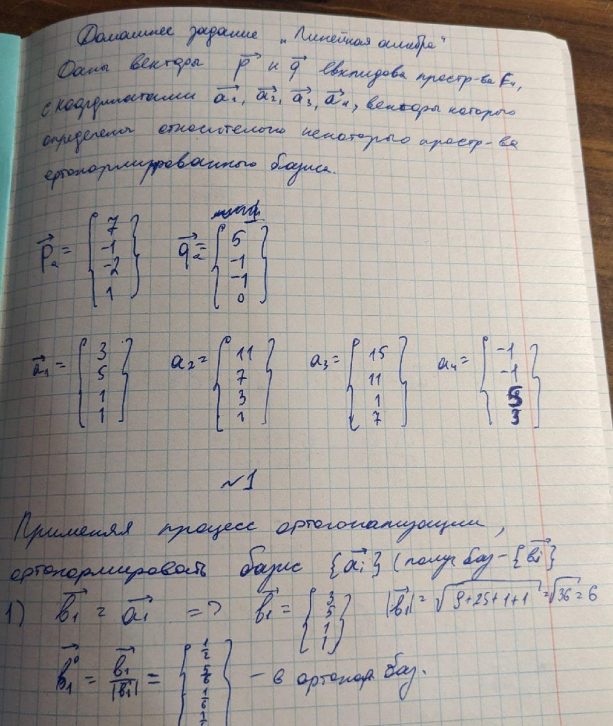 Домашнее задание „Линейная алгебра"
Даны векторы p⃗ и q⃗ евклидова простр-ва E₄,
с координатами a⃗₁, a⃗₂, a⃗₃, a⃗₄, векторы которого
определены относительного некоторого простр-ва
ортонормированного базиса.
p⃗ₐ = {7 -1 -2 1} q⃗ₐ = {5 -1 -1 0}
a⃗₁ = {3 5 1 1} a₂ = {11 7 3 1} a₃ = {15 11 1 7} a₄ = {-1 -1 5 3}
№1
Применяя процесс ортогонализации,
ортонормировать базис {a⃗i} (получ баз - {b⃗i}
1) b⃗₁ = a⃗₁ => b⃗₁ = {3 5 1 1} |b⃗₁| = √9+25+1+1 = √36 = 6
b⃗₁⁰ = b⃗₁/|b⃗₁| = {1/2 5/6 1/6 - в ортонор. баз.